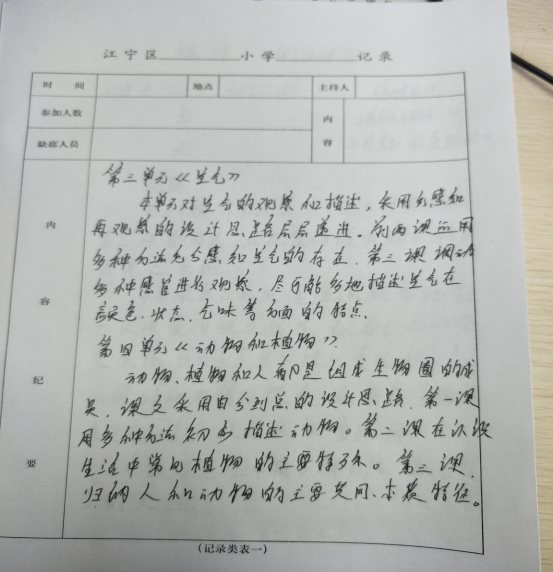 江宁区 小学 记录
时间 地点 主持人
参加人数 内容
缺席人员
内容纪要
第三单元《空气》
本单元对空气的观察和描述，采用先感知
再观察的设计思路层层递进。前两课运用
多种方法充分感知空气的存在，第三课调动
多种感官进行观察，尽可能多地描述空气在
颜色、状态、气味等方面的特点。
第四单元《动物和植物》
动物、植物和人都是组成生物圈的成
员，课文采用由分到总的设计思路，第一课
用多种方法初步描述动物。第二课在认识
生活中常见植物的主要特征。第三课，
归纳人和动物的主要共同、本质特征。
(记录类表一)